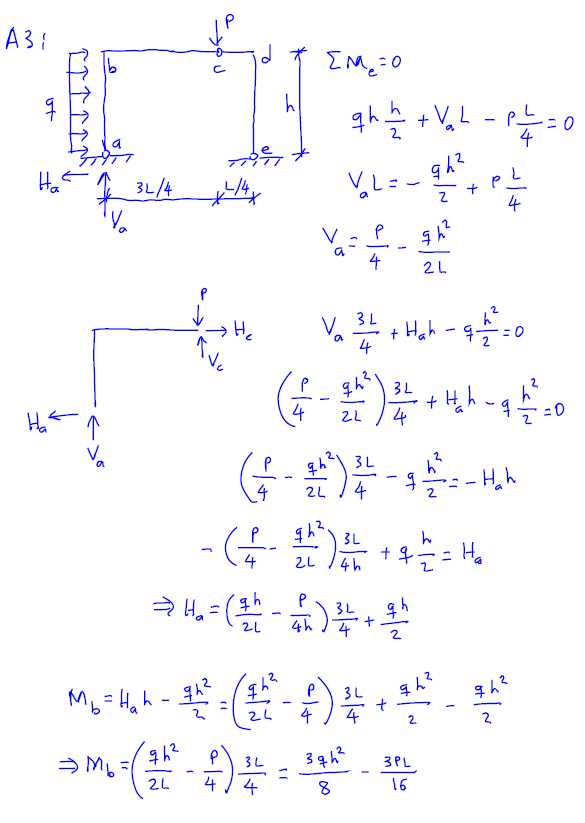 A3:
P
b
c
d
q
h
a
e
Ha
3L/4
L/4
Va
ΣMe=0
qh h/2 + VaL - P L/4 = 0
VaL = - qh²/2 + P L/4
Va = P/4 - qh²/2L
P
Hc
Vc
Ha
Va
Va 3L/4 + Hah - q h²/2 = 0
(P/4 - qh²/2L) 3L/4 + Hah - q h²/2 = 0
(P/4 - qh²/2L) 3L/4 - q h²/2 = - Hah
- (P/4 - qh²/2L) 3L/4h + q h/2 = Ha
⇒ Ha = (qh/2L - P/4h) 3L/4 + qh/2
Mb = Hah - qh²/2 = (qh²/2L - P/4) 3L/4 + qh²/2 - qh²/2
⇒ Mb = (qh²/2L - P/4) 3L/4 = 3qh²/8 - 3PL/16